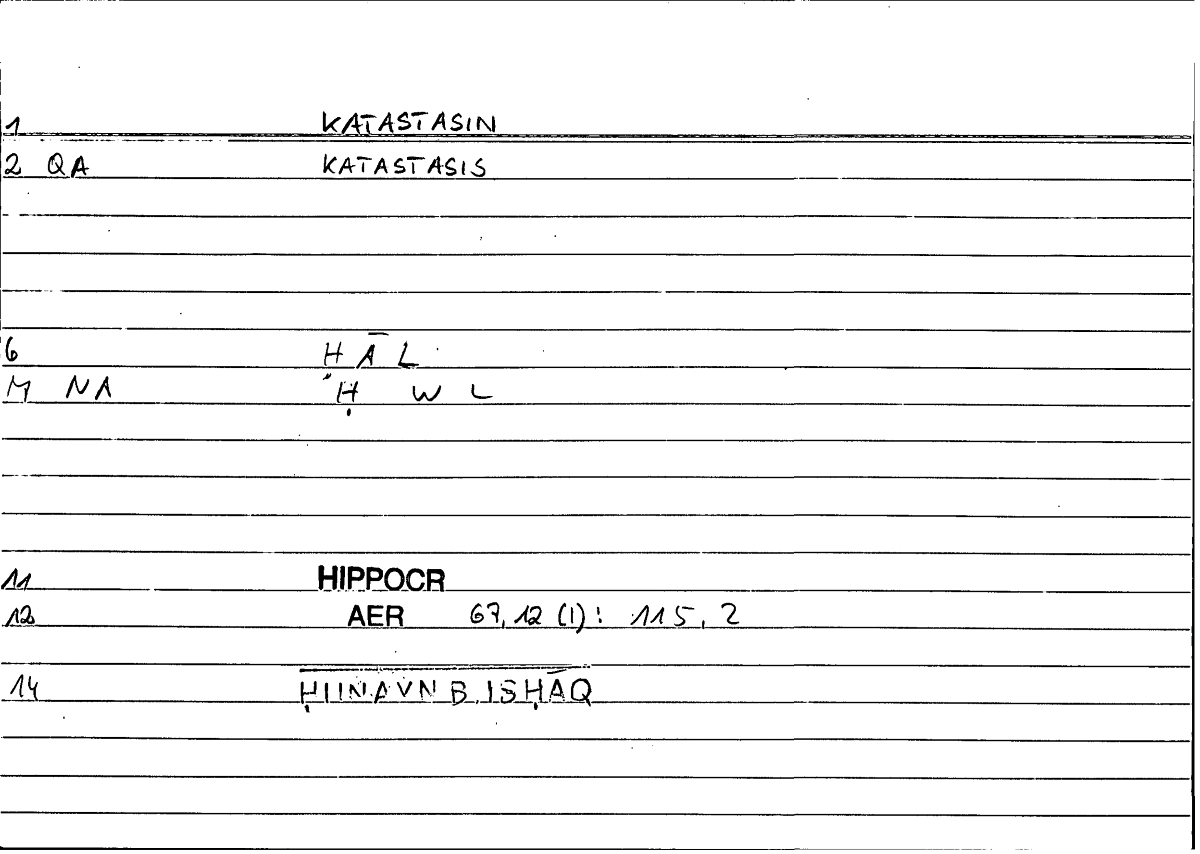 1 KATASTASIN
2 QA KATASTASIS
6 ḤĀL
M NA Ḥ W L
11 HIPPOCR
12 AER 67,12 (1): 115,2
14 ḤUNAYN B. ISḤĀQ